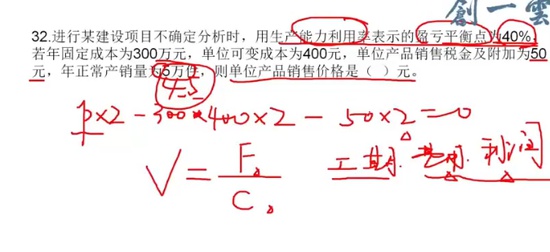 創一雲
32.进行某建设项目不确定分析时，用生产能力利用率表示的盈亏平衡点为40%。
若年固定成本为300万元，单位可变成本为400元，单位产品销售税金及附加为50
元，年正常产销量为5万件，则单位产品销售价格是（ ）元。
P×2-300×400×2-50×2=0
V=F/C
工期 费用 利润